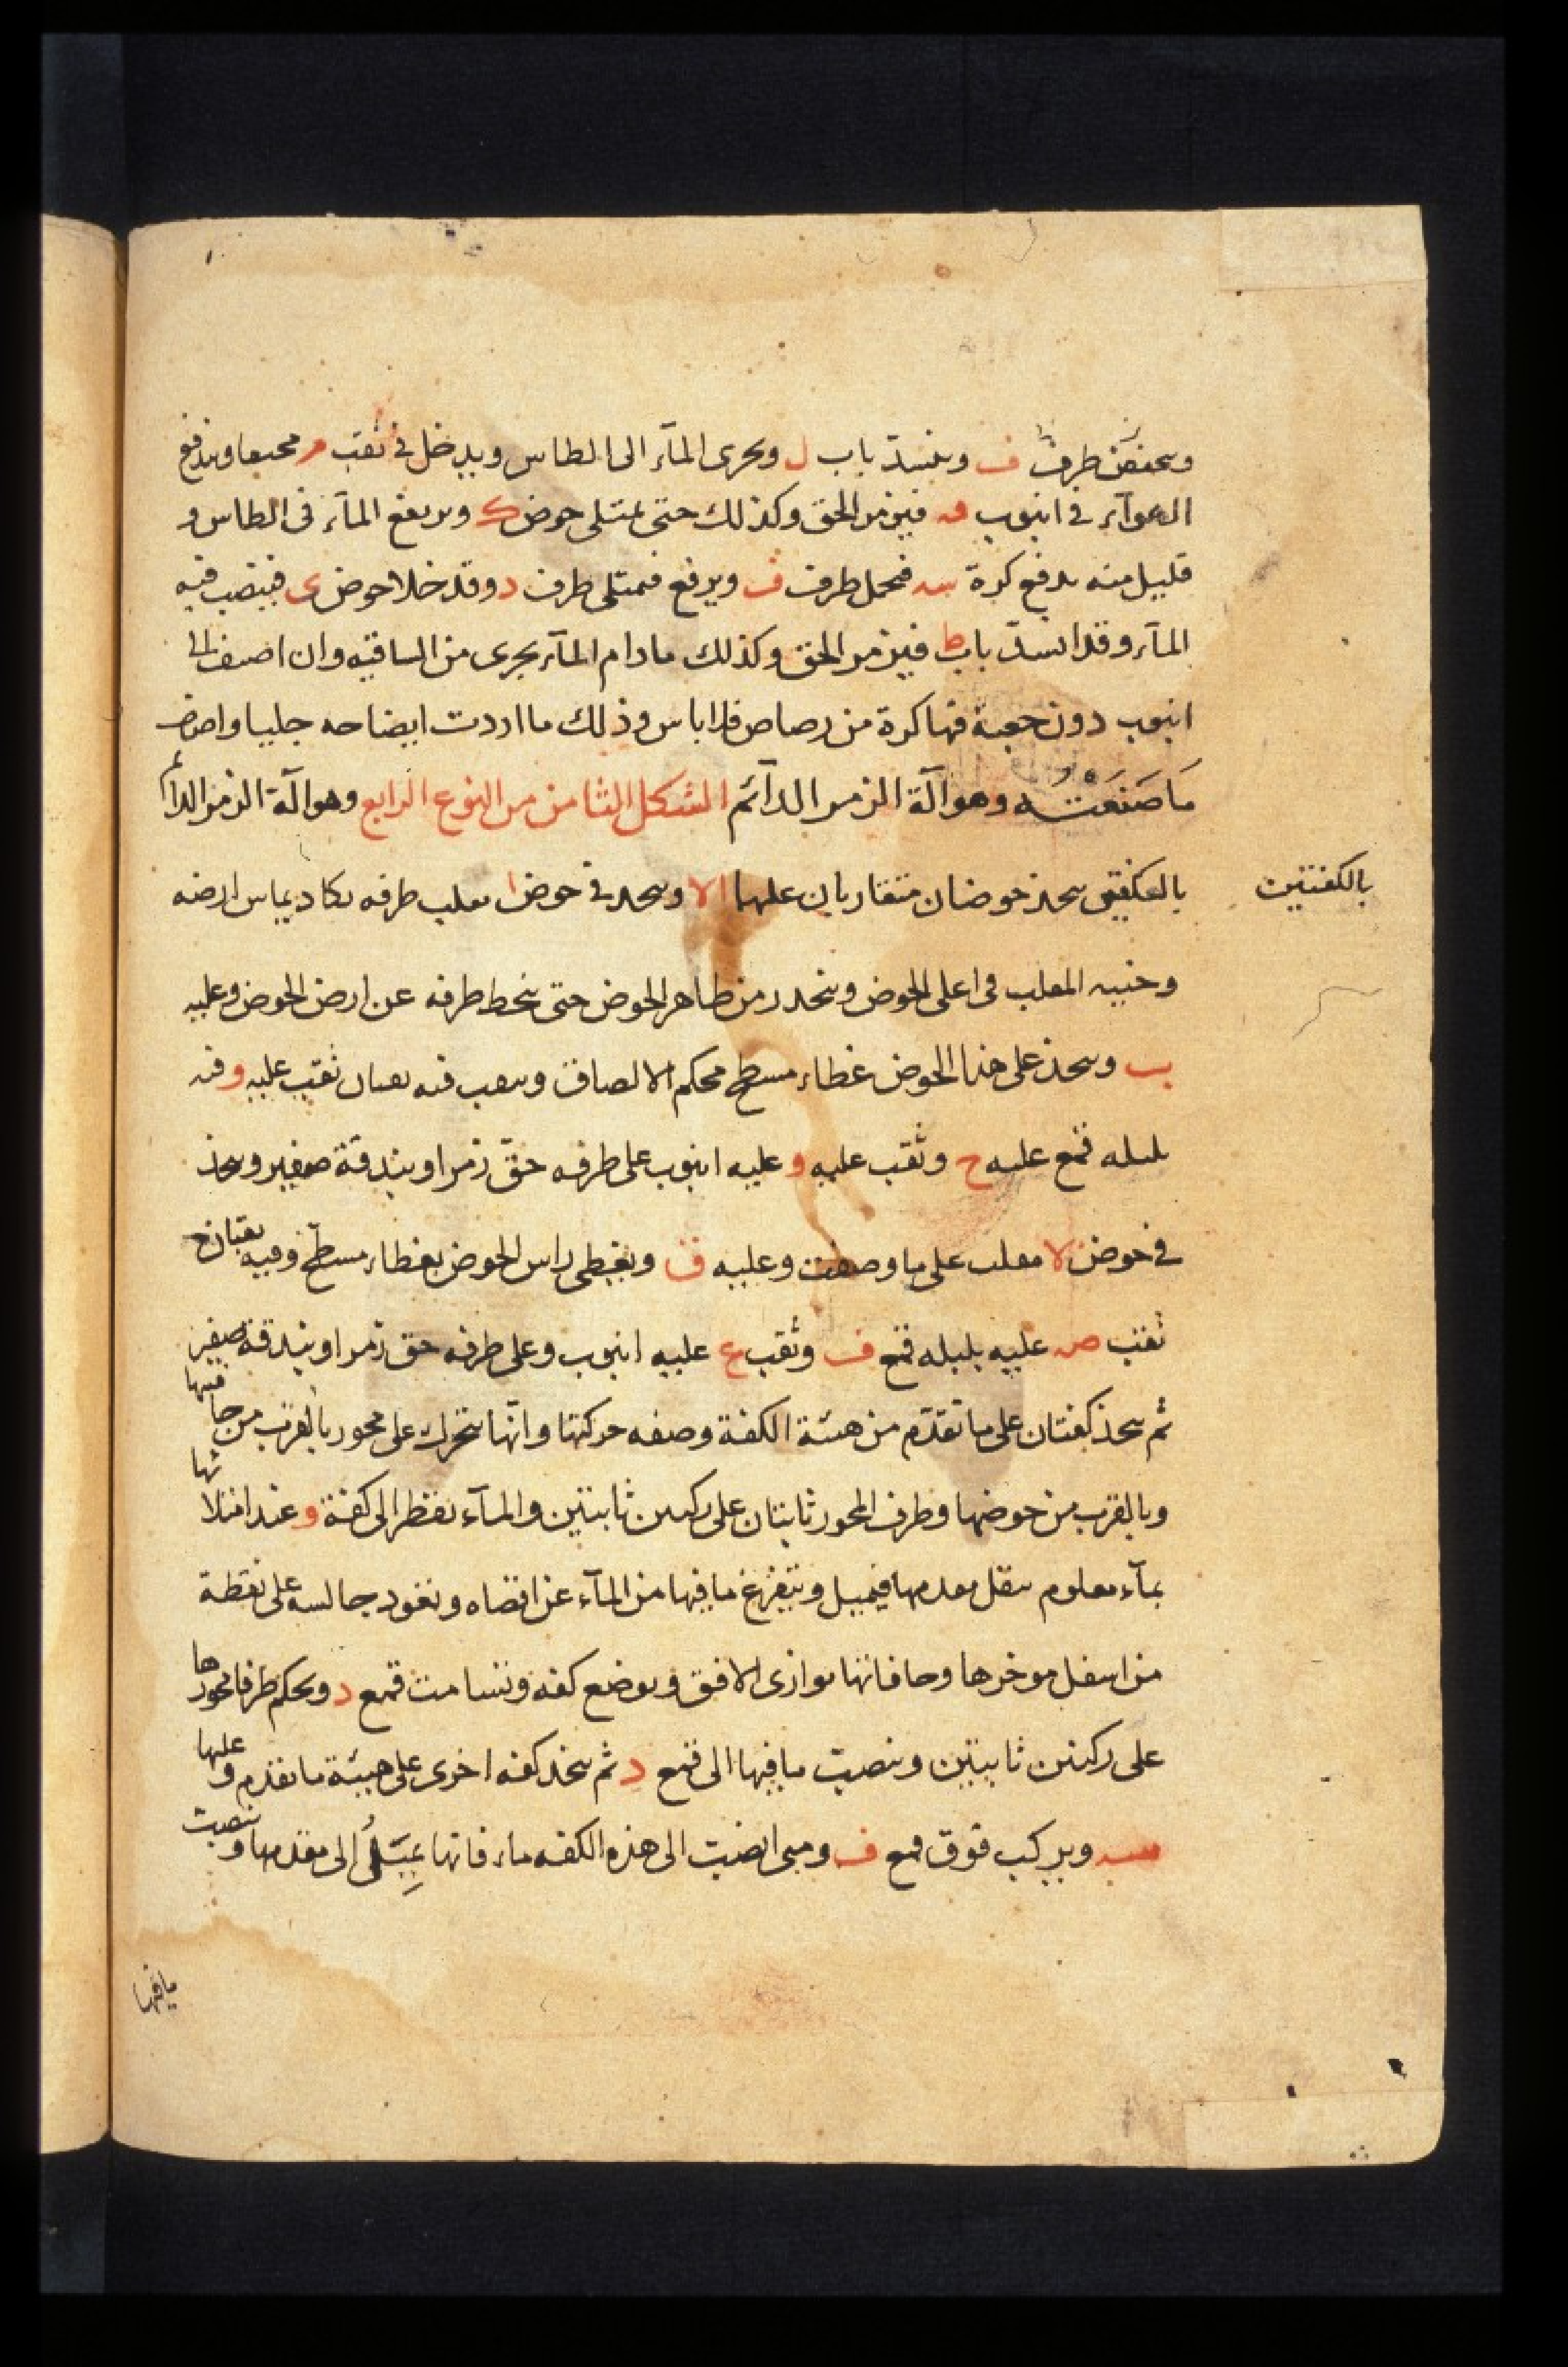 وينخفض طرف ف وينسد باب ل ويجرى المآء الى الطاس ويدخل في ثقب م مجتمعا ويندفع
الهوآء في انبوب فه فيزمر الحق وكذلك حتى يمتلى حوض ك ويرتفع المآء فى الطاس و
قليل منه يدفع كرة سه فيحمل طرف ف ويرتفع فيمتلى طرف د وقد خلا حوض ى فينصب فيه
المآء وقد انسد باب ط فيزمر الحق وكذلك مادام المآء يجرى من الساقيه وان اضيف الى
انبوب دون جعبة فيها كرة من رصاص فلا باس وذلك ما اردت ايضاحه جليا واصف
مَا صَنَعْتُه وهو آلة الزمر الدآئم الشكل الثامن من النوع الرابع وهو آلة الزمر الدائم
بالكفتين يتخذ حوضان متقاربان عليهما الا ويتخذ في حوض ا مقلب طرفه يكاد يماس ارضه
بالكفتين
وحنيه المقلب فى اعلى الحوض وينحدر من ظاهر الحوض حتى ينحط طرفه عن ارض الحوض وعليه
ب ويتخذ على هذا الحوض غطاء مسطح محكم الالصاق ويثقب فيه ثقبان ثقب عليه وفيه
بلبله قمع عليه ح وثقب عليه و وعليه انبوب على طرفه حق زمر او بندقة صفير ويتخذ
في حوض لا مقلب على ما وصفت وعليه ق ويغطى راس الحوض بغطاء مسطح وفيه ثقبان
ثقب ص عليه بلبله قمع ف وثقب ع عليه انبوب وعلى طرفه حق زمر او بندقة صفير
ثم يتخذ كفتان على ما تقدم من هيئة الكفة وصفه حركتها وانها تتحرك على محور بالقرب من حافتيها
وبالقرب من حوضها وطرف المحور ثابتان على ركنين ثابتين والمآء يقطر الى كفة و عند امتلائها
بمآء معلوم يثقل مقدمها فيميل ويتفرغ ما فيها من المآء عن اقصاه وتعود جالسه على نقطة
من اسفل موخرها وحافاتها موازى الافق ويوضع كفه وتسامت قمع د ويحكم طرفا محورها
على ركنين ثابتين وينصب ما فيها الى قمع د ثم يتخذ كفه اخرى على هيئة ما تقدم وعليها
سه ويركب فوق قمع ف ومتى انصب الى هذه الكفه ماء فانها يميل الى مقدمها وينصب
ما فيها